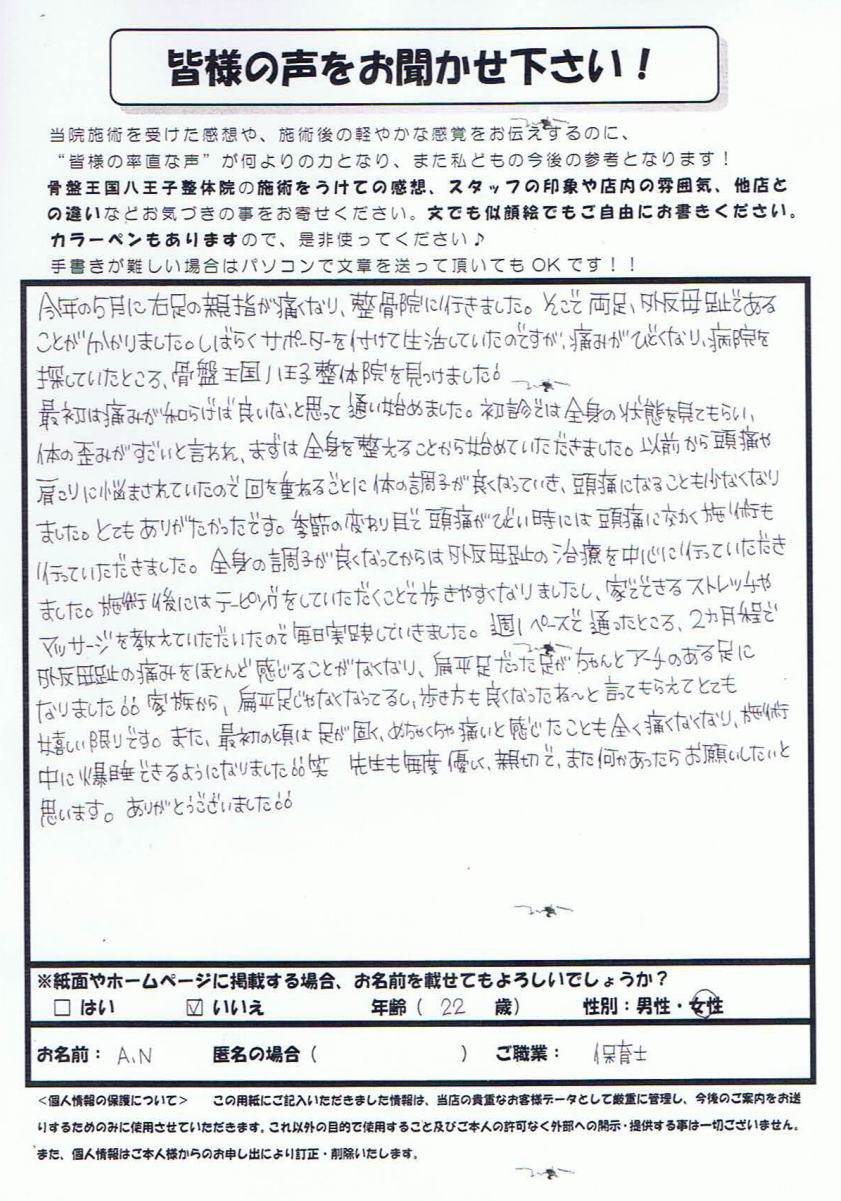 皆様の声をお聞かせ下さい！
当院施術を受けた感想や、施術後の軽やかな感覚をお伝えするのに、
“皆様の率直な声”が何よりの力となり、また私どもの今後の参考となります！
骨盤王国八王子整体院の施術をうけての感想、スタッフの印象や店内の雰囲気、他店と
の違いなどお気づきの事をお寄せください。文でも似顔絵でもご自由にお書きください。
カラーペンもありますので、是非使ってください♪
手書きが難しい場合はパソコンで文章を送って頂いてもOKです！！
今年の5月に右足の親指が痛くなり、整骨院に行きました。そこで両足、外反母趾である
ことが分かりました。しばらくサポーターを付けて生活していたのですが、痛みがひどくなり、病院を
探していたところ、骨盤王国八王子整体院を見つけました!
最初は痛みが和らげば良いな、と思って通い始めました。初診では全身の状態を見てもらい、
体の歪みがすごいと言われ、まずは全身を整えることから始めていただきました。以前から頭痛や
肩こりに悩まされていたので回を重ねるごとに体の調子が良くなっていき、頭痛になることも少なくなり
ました。とてもありがたかったです。季節の変わり目で頭痛がひどい時には頭痛にきかく施術も
行っていただきました。全身の調子が良くなってからは外反母趾の治療を中心に行っていただき
ました。施術後にはテーピングをしていただくことで歩きやすくなりましたし、家でできるストレッチや
マッサージを教えていただいたので毎日実践していきました。週1ペースで通ったところ、2カ月程で
外反母趾の痛みをほとんど感じることがなくなり、扁平足だった足がちゃんとアーチのある足に
なりました!! 家族から、扁平足じゃなくなってるし、歩き方も良くなったね～と言ってもらえてとても
嬉しい限りです。また、最初の頃は足が固く、めちゃくちゃ痛いと感じたことも全く痛くなくなり、施術
中に爆睡できるようになりました!!笑 先生も毎度優しく、親切で、また何かあったらお願いしたいと
思います。ありがとうございました!!
※紙面やホームページに掲載する場合、お名前を載せてもよろしいでしょうか？
□ はい ☑ いいえ 年齢（ 22 歳） 性別：男性・女性
お名前： A.N 匿名の場合（ ） ご職業： 保育士
＜個人情報の保護について＞ この用紙にご記入いただきました情報は、当店の貴重なお客様データとして厳重に管理し、今後のご案内をお送
りするためのみに使用させていただきます。これ以外の目的で使用すること及びご本人の許可なく外部への開示・提供する事は一切ございません。
また、個人情報はご本人様からのお申し出により訂正・削除いたします。